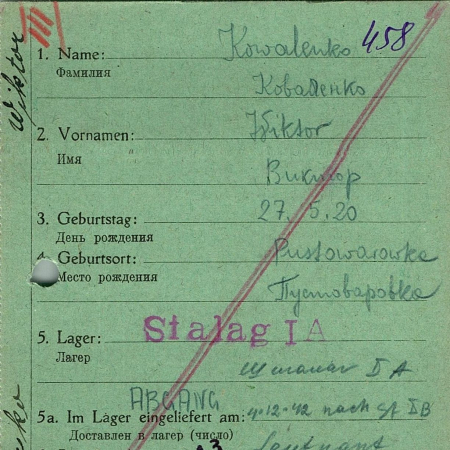 Wiktor
III
458
1. Name: Kowalenko
Фамилия
Коваленко
2. Vornamen: Wiktor
Имя
Виктор
3. Geburtstag: 27. 5. 20
День рождения
4. Geburtsort: Pustowarowka
Место рождения
Пустоваровка
5. Lager: Stalag I A
Лагер
I A
ABGANG
5a. Im Lager eingeliefert am: 4.12.42 nach I B
Доставлен в лагер (число)
Leutnant